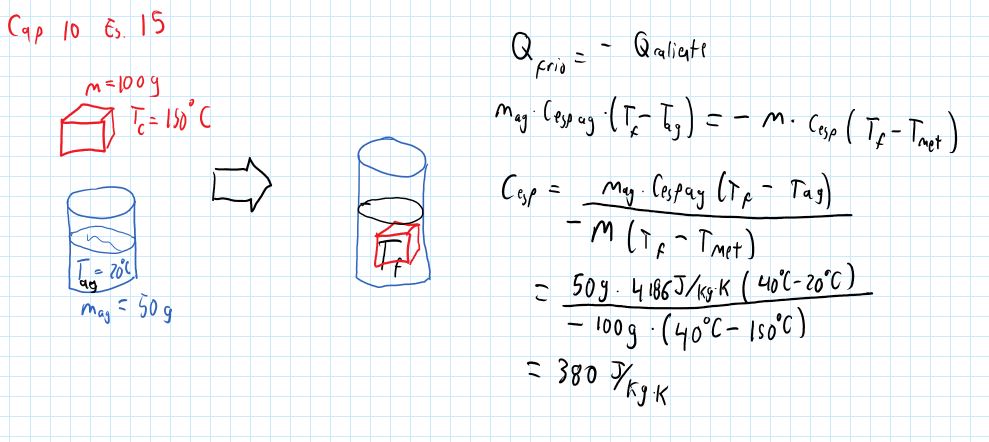 Cap 10 Es. 15
m = 100 g
T_c = 150°C
T_ag = 20°C
m_ag = 50 g
T_f
Q_frio = - Q_caliente
m_ag · C_esp ag · (T_f - T_ag) = - m · C_esp (T_f - T_met)
C_esp = m_ag · C_esp ag (T_f - T_ag)
- m (T_f - T_met)
= 50 g · 4186 J/kg·K (40°C - 20°C)
- 100 g · (40°C - 150°C)
= 380 J/kg·K